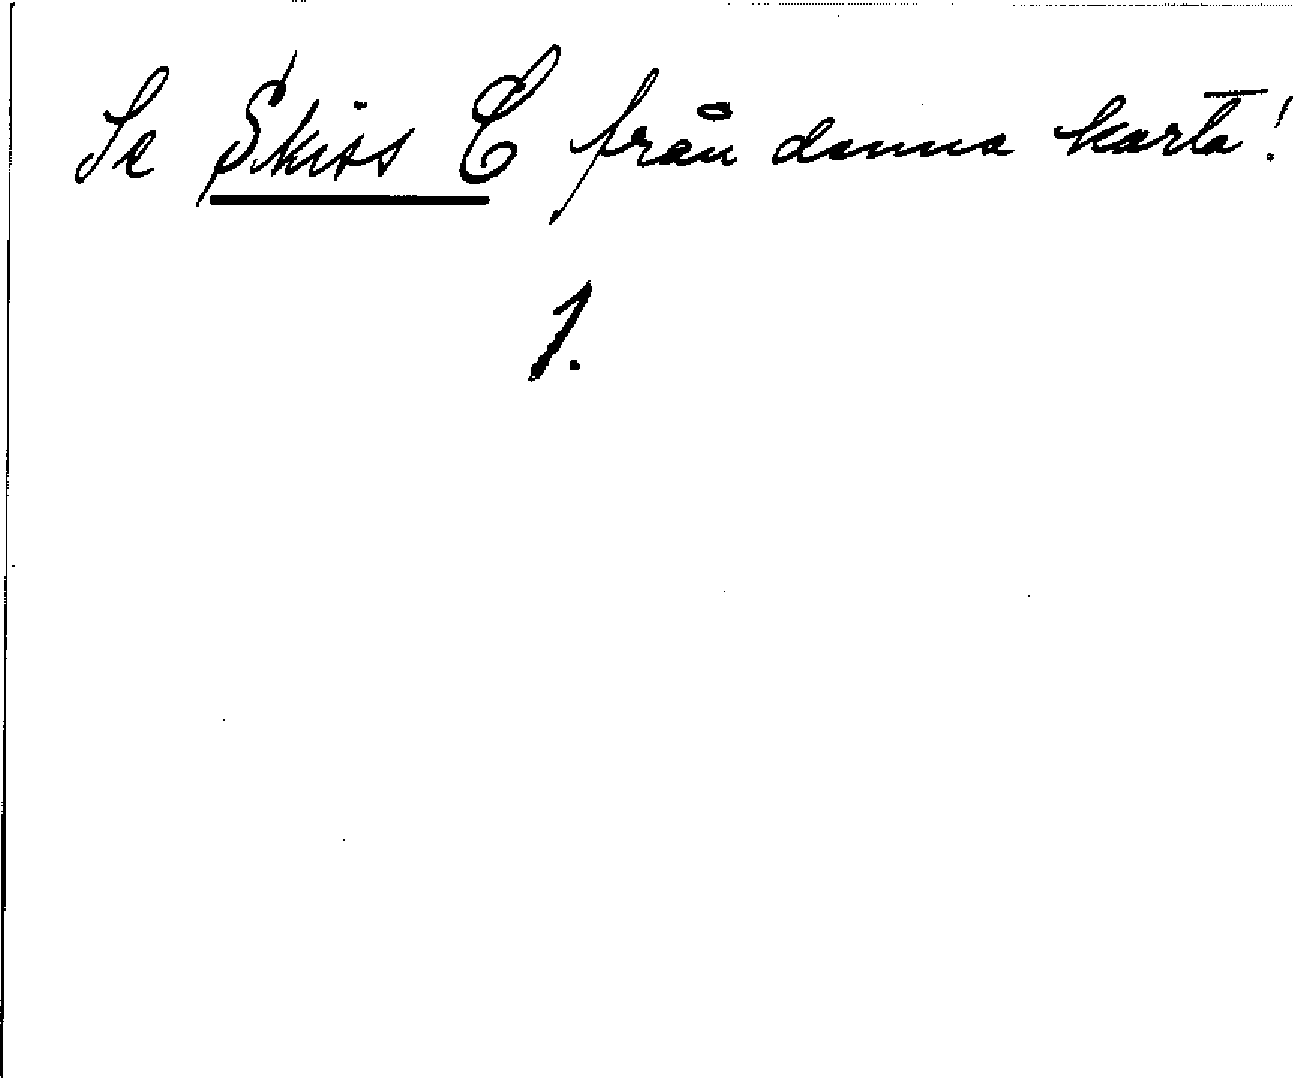 Se Skiss C från denna karta!
1.